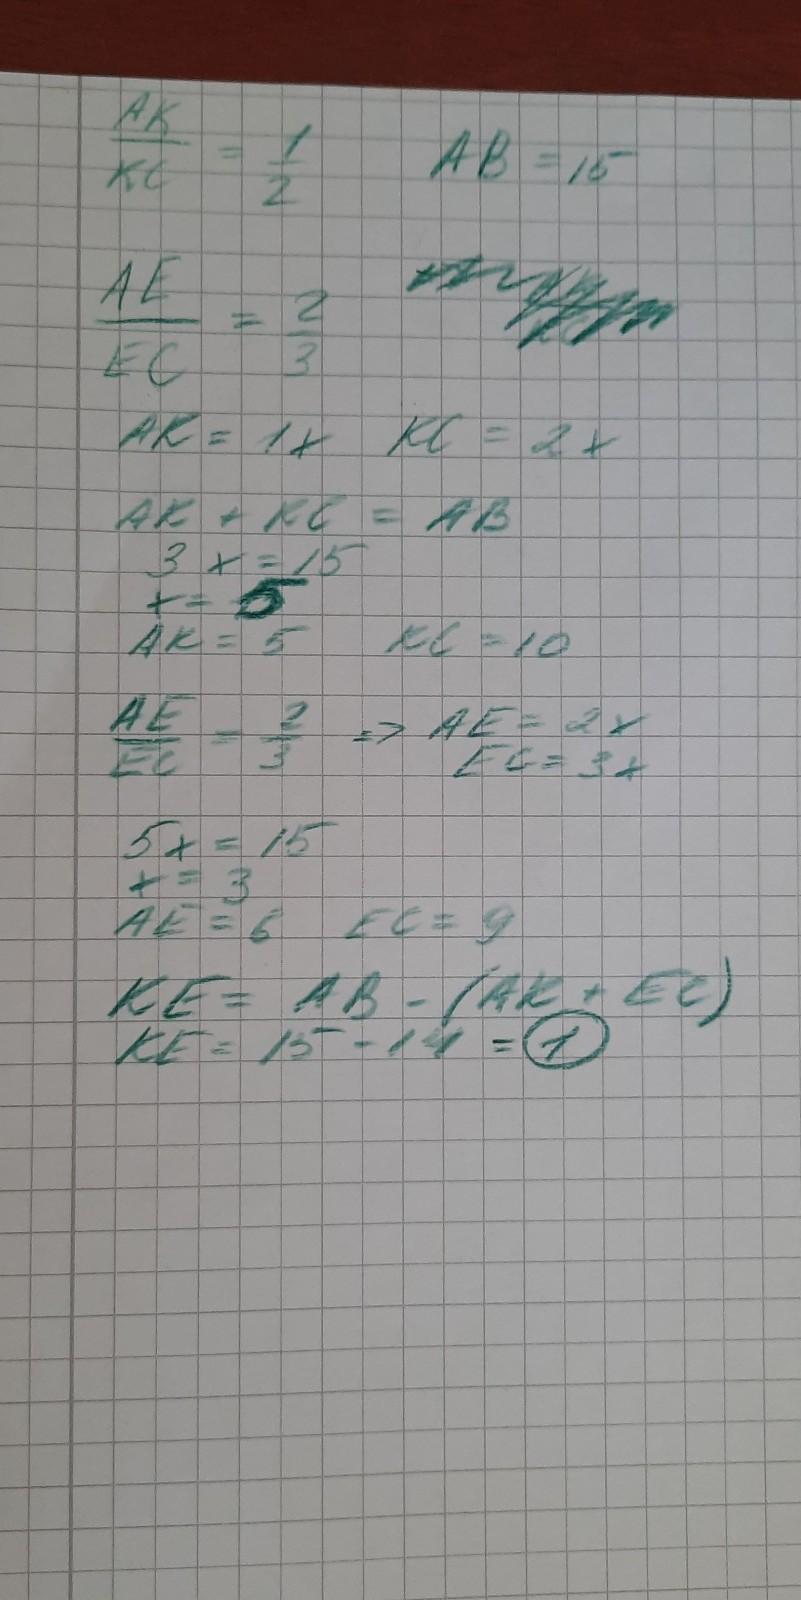 AK/KC = 1/2 AB = 15
AE/EC = 2/3
AK = 1x KC = 2x
AK + KC = AB
3x = 15
x = 5
AK = 5 KC = 10
AE/EC = 2/3 => AE = 2x
EC = 3x
5x = 15
x = 3
AE = 6 EC = 9
KE = AB - (AK + EC)
KE = 15 - 14 = 1